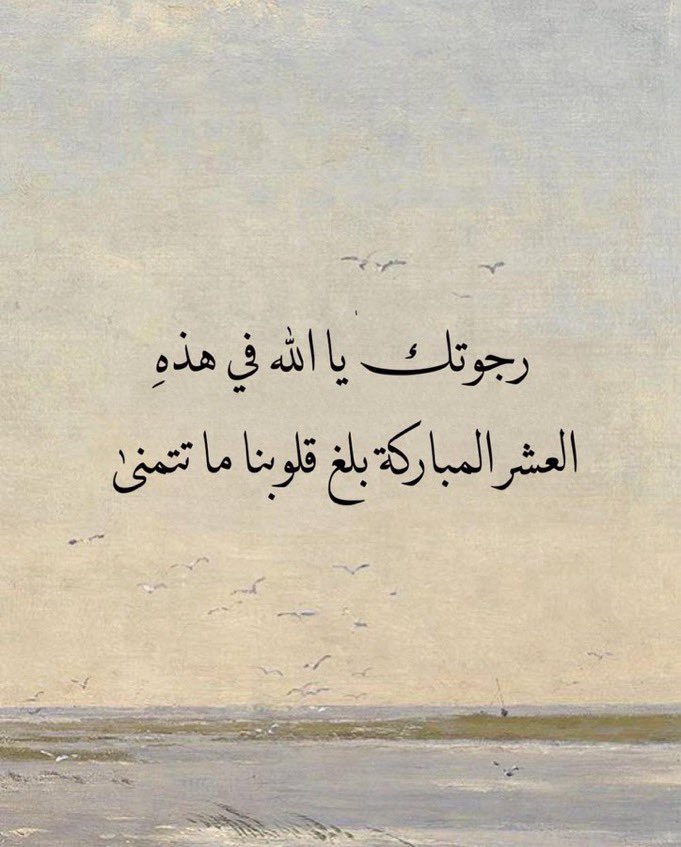 رجوتك يا الله في هذهِ
العشر المباركة بلغ قلوبنا ما تتمنىٰ